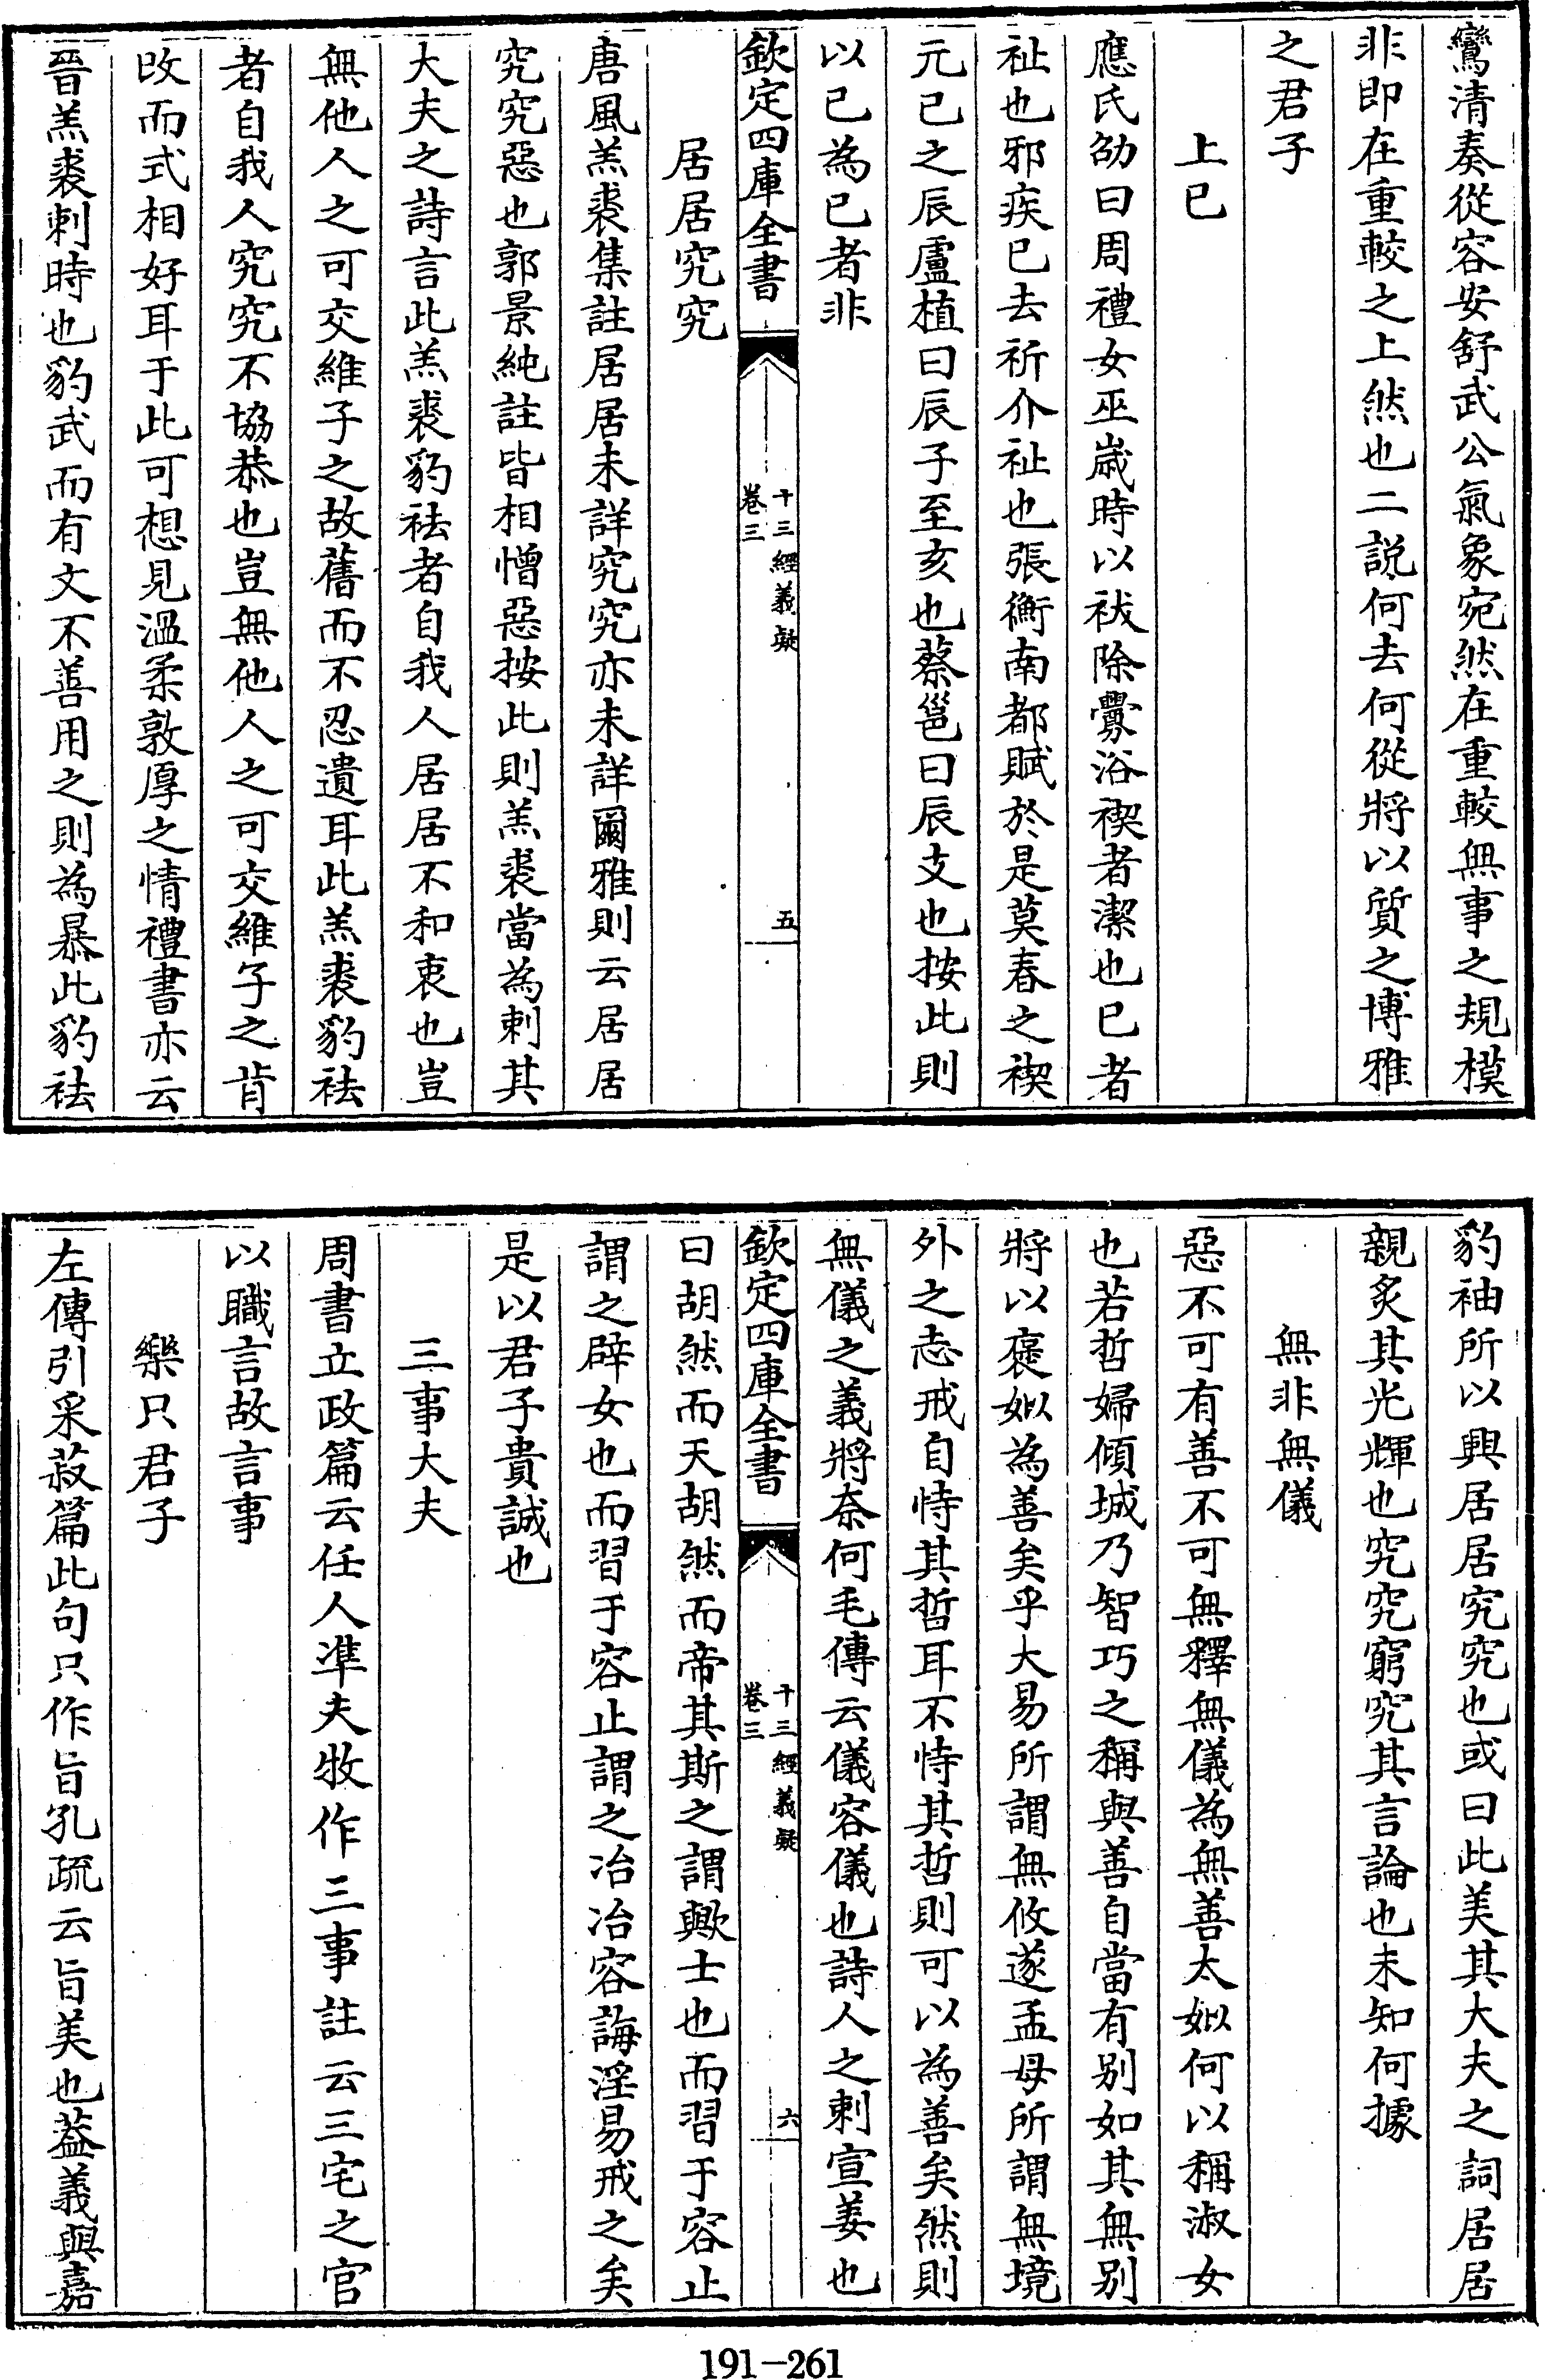 鸞清奏從容安舒武公氣象宛然在重較無事之規模
非即在重較之上然也二説何去何從將以質之博雅
之君子
上巳
應氏劭曰周禮女巫歲時以祓除釁浴禊者潔也巳者
祉也邪疾巳去祈介祉也張衡南都賦於是莫春之禊
元巳之辰盧植曰辰子至亥也蔡邕曰辰支也按此則
以巳為已者非
欽定四庫全書
十三經義疑
卷三
五
居居究究
唐風羔裘集註居居未詳究究亦未詳爾雅則云居居
究究惡也郭景純註皆相憎惡按此則羔裘當為刺其
大夫之詩言此羔裘豹袪者自我人居居不和衷也豈
無他人之可交維子之故舊而不忍遺耳此羔裘豹袪
者自我人究究不協恭也豈無他人之可交維子之肯
改而式相好耳于此可想見溫柔敦厚之情禮書亦云
晉羔裘刺時也豹武而有文不善用之則為暴此豹袪
豹袖所以興居居究究也或曰此美其大夫之詞居居
親炙其光輝也究究窮究其言論也未知何據
無非無儀
惡不可有善不可無釋無儀為無善太如何以稱淑女
也若哲婦傾城乃智巧之稱與善自當有别如其無别
將以褒姒為善矣乎大易所謂無攸遂孟母所謂無境
外之志戒自恃其哲耳不恃其哲則可以為善矣然則
無儀之義將奈何毛傳云儀容儀也詩人之刺宣姜也
欽定四庫全書
十三經義疑
卷三
六
曰胡然而天胡然而帝其斯之謂歟士也而習于容止
謂之辟女也而習于容止謂之冶冶容誨淫易戒之矣
是以君子貴誠也
三事大夫
周書立政篇云任人凖夫牧作三事註云三宅之官
以職言故言事
樂只君子
左傳引采菽篇此句只作旨孔疏云旨美也葢義與嘉
191-261